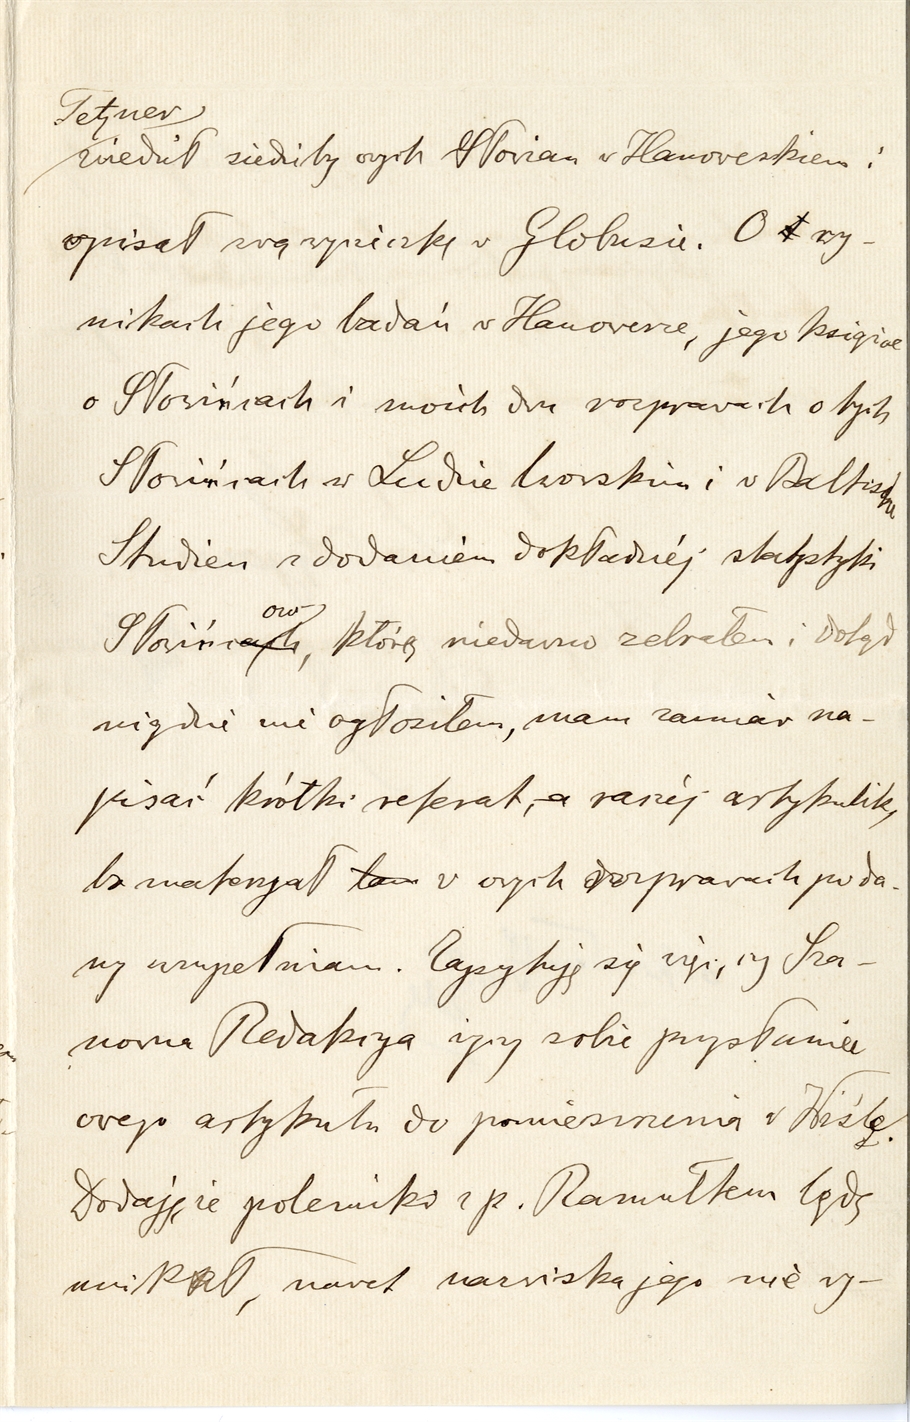 Tetzner
zwiedził siedziby owych Słowian w Hanowerskiem i
opisał swą wycieczkę w Globusie. O wy-
nikach jego badań w Hanowerze, jego książce
o Słowińcach i moich dwu rozprawach o tych
Słowińcach w Ludzie lwowskim i w Baltische
Studien z dodaniem dokładnéj statystyki
Słowińców, którą niedawno zebrałem i dotąd
nigdzie nie ogłosiłem, mam zamiar na-
pisać krótki referat, a raczéj artykulik,
bo materyał w owych rozprawach poda-
ny uzupełniam. Zapytuję się więc, czy Sza-
nowna Redakcya życzy sobie przysłanie
owego artykułu do pomieszczenia w Wiśle.
Dodaję że polemiki z p. Ramułtem będę
unikał, nawet nazwiska jego nie wy-